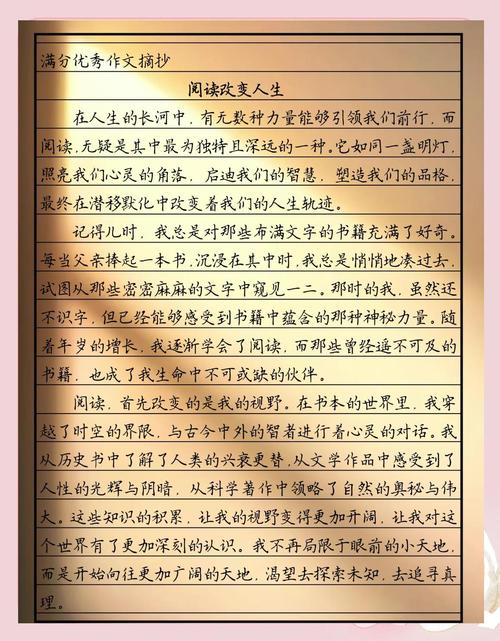 满分优秀作文摘抄
阅读改变人生
在人生的长河中，有无数种力量能够引领我们前行，而
阅读，无疑是其中最为独特且深远的一种。它如同一盏明灯，
照亮我们心灵的角落，启迪我们的智慧，塑造我们的品格，
最终在潜移默化中改变着我们的人生轨迹。
记得儿时，我总是对那些布满文字的书籍充满了好奇。
每当父亲捧起一本书，沉浸在其中时，我总是悄悄地凑过去，
试图从那些密密麻麻的文字中窥见一二。那时的我，虽然还
不识字，但已经能够感受到书籍中蕴含的那种神秘力量。随
着年岁的增长，我逐渐学会了阅读，而那些曾经遥不可及的
书籍，也成了我生命中不可或缺的伙伴。
阅读，首先改变的是我的视野。在书本的世界里，我穿
越了时空的界限，与古今中外的智者进行着心灵的对话。我
从历史书中了解了人类的兴衰更替，从文学作品中感受到了
人性的光辉与阴暗，从科学著作中领略了自然的奥秘与伟
大。这些知识的积累，让我的视野变得更加开阔，让我对这
个世界有了更加深刻的认识。我不再局限于眼前的小天地，
而是开始向往更加广阔的天地，渴望去探索未知，去追寻真
理。